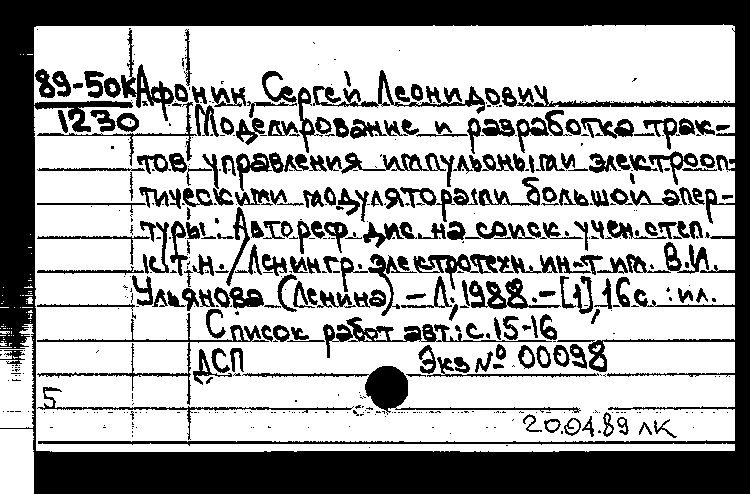 89-50к Афонин, Сергей Леонидович
1230 Моделирование и разработка трак-
тов управления импульсными электрооп-
тическими модуляторами большой апер-
туры: Автореф. дис. на соиск. учен. степ.
к.т.н. / Ленингр. электротехн. ин-т им. В.И.
Ульянова (Ленина). – Л., 1988. – [1], 16 с. : ил.
Список работ авт.: с. 15-16
ДСП Экз № 00098
5
20.04.89 лк